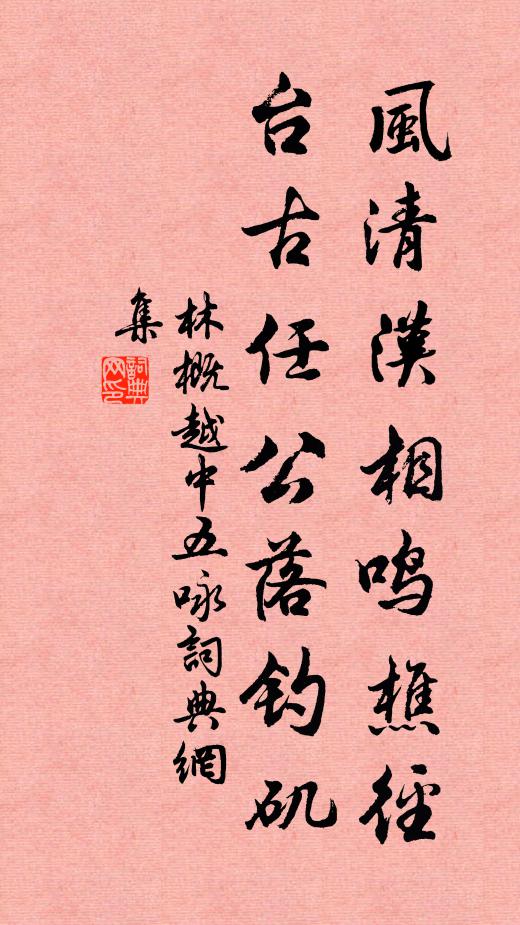 風清漢相鳴樵徑
台古任公落钓矶
林概越中五咏詞典網
集
詞典网印